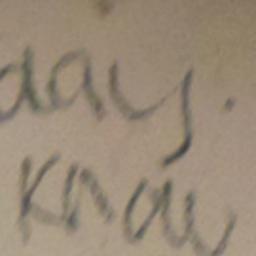 day.
Know